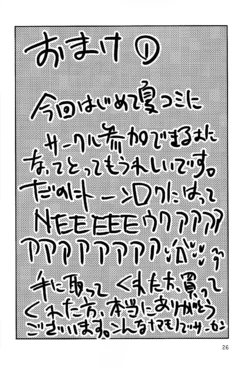 おまけ①
今回はじめて夏コミに
サークル参加できるように
なってとってもうれしいです。
だのにトーンロクにはって
NEEEEEウワアアアア
アアアアアアアア
手に取ってくれた方、買って
くれた方、本当にありがとう
ございます。こんなナマモノでサーセン
26